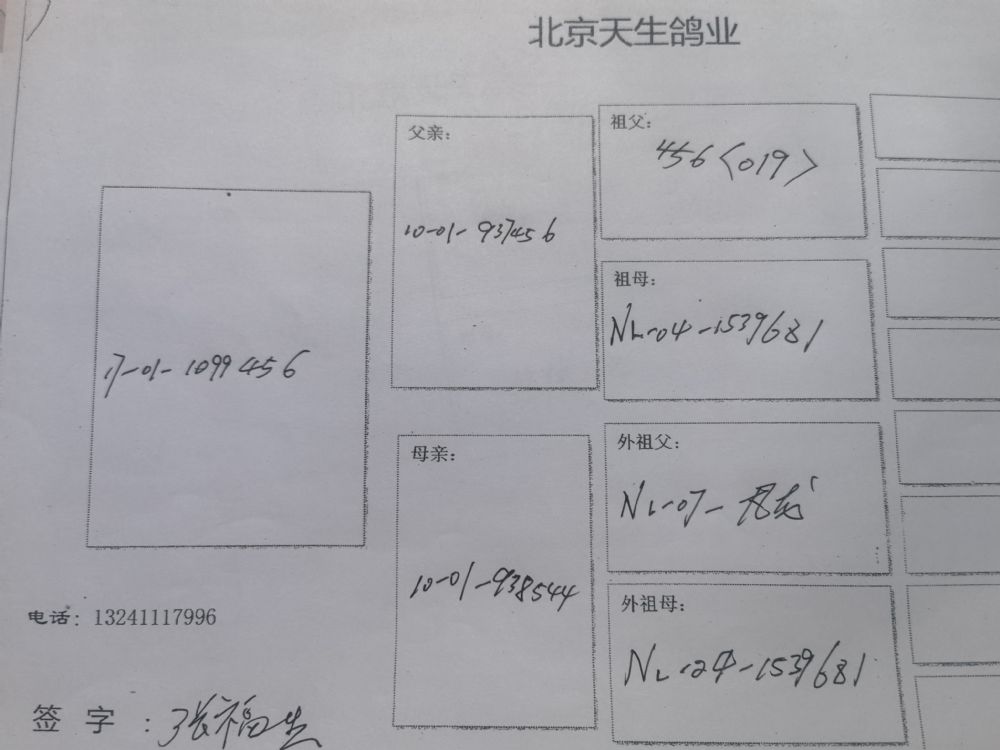 北京天生鸽业
父亲：
10-01-937456
祖父：
456〈019〉
祖母：
NL-04-1539681
17-01-1099456
母亲：
10-01-938544
外祖父：
NL-07-
外祖母：
NL-04-1539681
电话：13241117996
签字：张福生